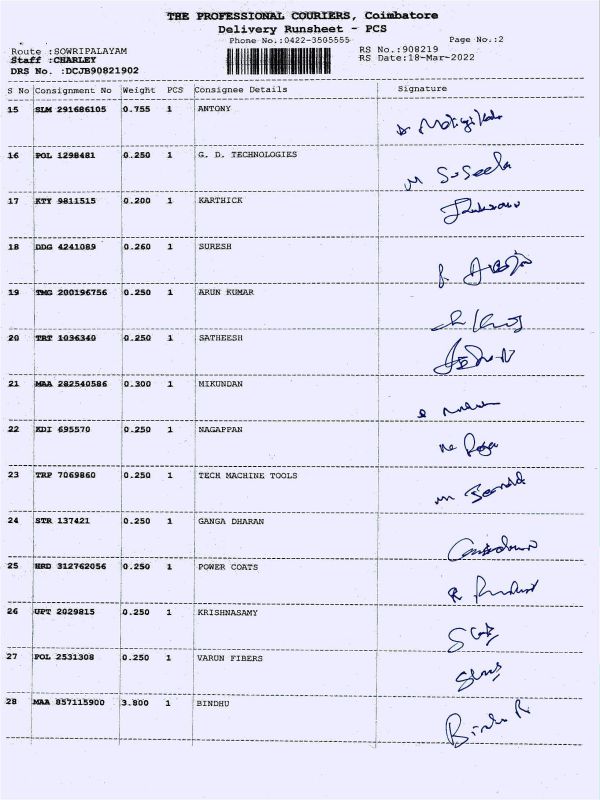 THE PROFESSIONAL COURIERS, Coimbatore
Delivery Runsheet - PCS
Phone No.:0422-3505555
Page No.:2
Route :SOWRIPALAYAM
RS No.:908219
Staff :CHARLEY
RS Date:18-Mar-2022
DRS No. :DCJB90821902
S No Consignment No Weight PCS Consignee Details Signature
15 SLM 291686105 0.755 1 ANTONY
16 POL 1298481 0.250 1 G. D. TECHNOLOGIES
17 KTY 9811515 0.200 1 KARTHICK
18 DDG 4241089 0.260 1 SURESH
19 TMG 200196756 0.250 1 ARUN KUMAR
20 TRT 1036340 0.250 1 SATHEESH
21 MAA 282540586 0.300 1 MIKUNDAN
22 KDI 695570 0.250 1 NAGAPPAN
23 TRP 7069860 0.250 1 TECH MACHINE TOOLS
24 STR 137421 0.250 1 GANGA DHARAN
25 HRD 312762056 0.250 1 POWER COATS
26 UPT 2029815 0.250 1 KRISHNASAMY
27 POL 2531308 0.250 1 VARUN FIBERS
28 MAA 857115900 3.800 1 BINDHU Bindu R